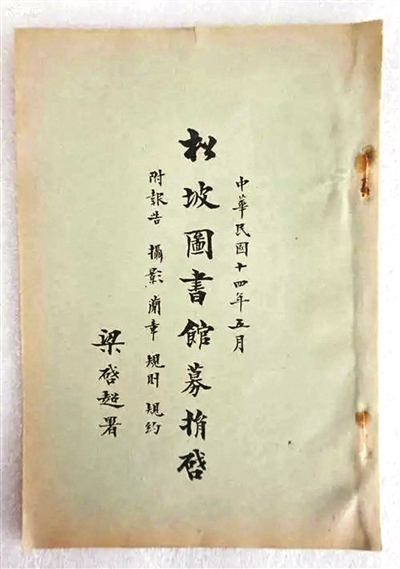 中華民國十四年五月
松坡圖書館募捐啓
附報告 攝影 簡章 規則 規約
梁啓超署